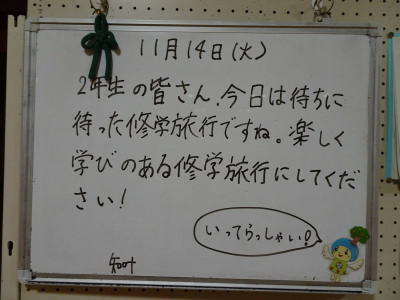 11月14日(火)
2年生の皆さん、今日は待ちに
待った修学旅行ですね。楽しく
学びのある修学旅行にしてくだ
さい!
いってらっしゃい!